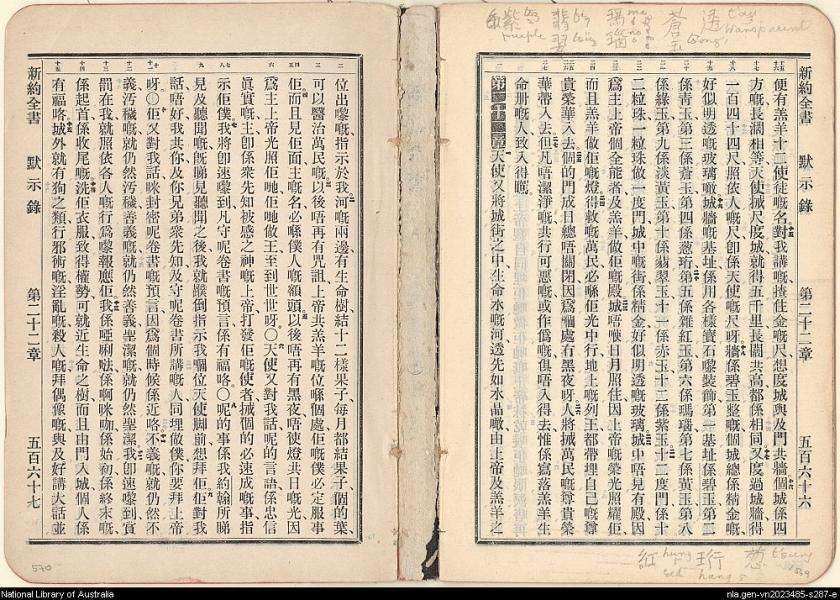 紫 翡翠 瑪瑙 蒼玉 透
purple
transparent
新約全書 默示錄 第二十二章 五百六十六
便有羔羊十二使徒嘅名對我講嘅揸住金嘅尺想度城與及門共牆個城係四
方嘅長濶相等天使搣尺度城就得五千里長闊共高都係相同又度過城牆得
一百四十四尺照依人嘅尺卽係天使嘅尺呀牆係碧玉整嘅個城總係精金嘅
好似明透嘅玻璃噉城牆嘅基址係用各樣寶石嚟裝飾第一基址係碧玉第二
係青玉第三係蒼玉第四係葱珩第五係雜紅玉第六係瑪瑙第七係黃玉第八
係綠玉第九係淡黃玉第十係翡翠玉十一係赤玉十二係紫玉十二度門係十
二粒珠一粒珠做一度門城中嘅街係精金好似明透嘅玻璃城中唔見有殿因
爲主上帝個全能者及羔羊做佢嘅殿城唔使日月照住因上帝嘅榮光照耀佢
而且羔羊做佢嘅燈得救嘅萬民必喺佢光中行地上嘅列王都帶埋自己嘅尊
貴榮華入去個的門成日總唔關閉因爲個處冇黑夜呀人將搣萬民嘅尊貴榮
華帶入去但凡唔潔淨嘅共行可惡嘅或作僞嘅俱唔入得去惟係寫落羔羊生
命册嘅人致入得嘅
第二十二章 天使又將城街之中生命水嘅河透先如水晶噉由上帝及羔羊之
紅 hung red 珩 hang 葱
位出嚟嘅指示於我河嘅兩邊有生命樹結十二樣果子每月都結果子個的葉
可以醫治萬民嘅以後唔再有咒詛上帝共羔羊嘅位喺個處佢嘅僕必定服事
佢而且見佢面主嘅名必喺僕人嘅額頭以後唔再有黑夜唔使燈共日嘅光因
爲主上帝光照佢哋佢哋做王至到世世呀〇天使又對我話呢的言語係忠信
眞實嘅主卽係衆先知被感之神嘅上帝打發佢嘅使者搣個的必速成嘅事指
示佢僕我將卽速嚟到凡守呢卷書嘅預言係有福咯〇呢的事係我約翰所睇
見及聽聞嘅旣睇見聽聞之後我就餵倒指示我嗰位天使脚前想拜佢佢對我
話唔好我共你及你兄弟衆先知及守呢卷書所講嘅人同埋做僕你要拜上帝
呀〇佢又對我話咪封密呢卷書嘅預言因爲個時候係近咯不義嘅就仍然不
義汚穢嘅就仍然汚穢善義嘅就仍然善義聖潔嘅就仍然聖潔我卽速嚟到賞
罰在我就照依各人嘅行爲嚟報應佢我係啞喇㗎係啊咪咖係始初係終末嘅
係起首係收尾嘅洗佢衣服致得權勢可就近生命之樹而且由門入城個人係
有福咯城外就有狗之類行邪術嘅淫亂嘅殺人嘅拜偶像嘅與及好講大話並
新約全書 默示錄 第二十二章 五百六十七
570
National Library of Australia
nla.gen-vn2023485-s287-e